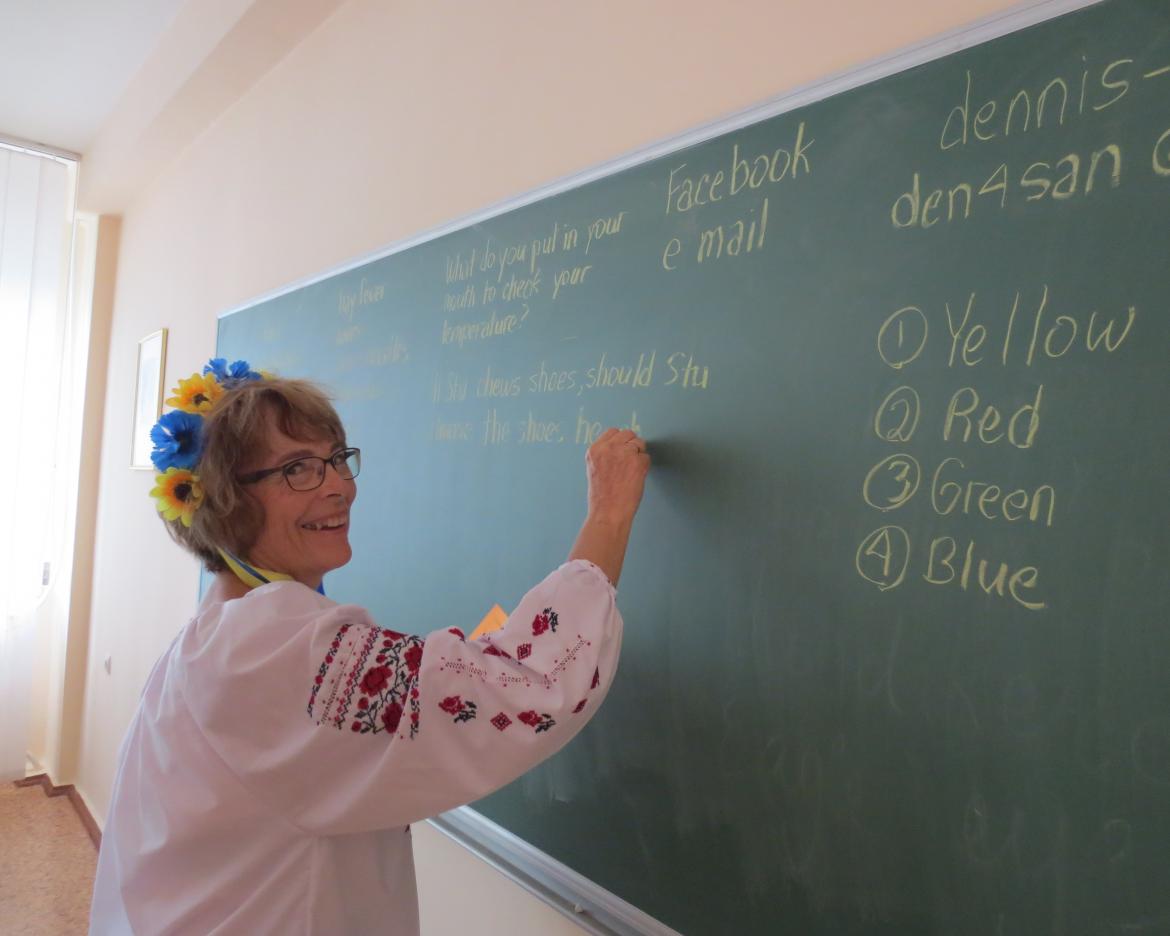 hay fever
What do you put in your
mouth to check your
temperature?
Stu chews shoes, should Stu
the shoes he
Facebook
e mail
dennis-
den4san
① Yellow
② Red
③ Green
④ Blue